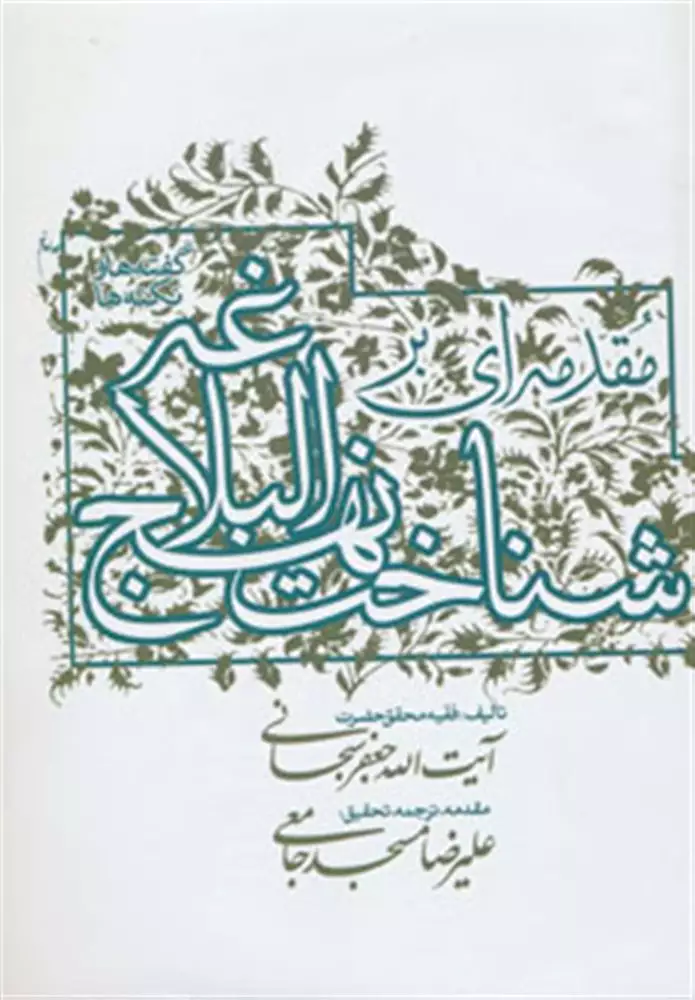 گفته‌ها و
نکته‌ها
مُقدمه‌ای بر
شناخت نهج البلاغه
تألیف: فقیه محقق حضرت
آیت الله جعفر سبحانی
مقدمه، ترجمه، تحقیق:
علیرضا مسجد جامعی